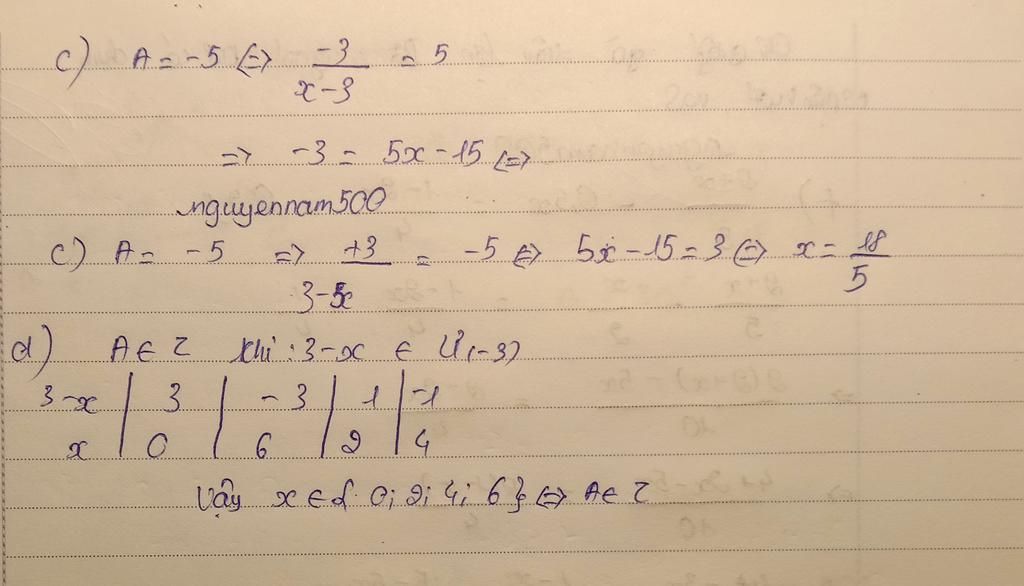 c) A = -5 <=> -3/(x-3) = 5
=> -3 = 5x - 15 <=>
nguyennam500
c) A = -5 => +3/(3-x) = -5 <=> 5x - 15 = 3 <=> x = 18/5
d) A ∈ Z khi : 3-x ∈ Ư(-3)
3-x | 3 | -3 | 1 | -1
x | 0 | 6 | 2 | 4
Vậy x ∈ { 0; 2; 4; 6 } <=> A ∈ Z